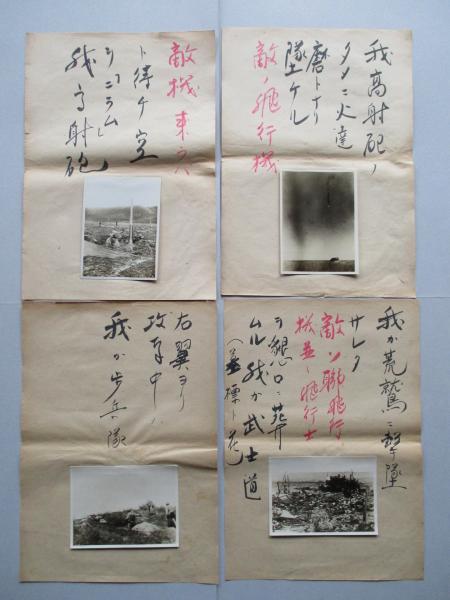 我高射砲ノ
タメニ火達
磨トナリ
墜ケル
敵ノ飛行機
敵機来ラバ
ト待ケ空
ヲニラム
我が高射砲
我が荒鷲ニ撃墜
サレタ
敵ソ聯飛行
機並ニ飛行士
ヲ懇ロニ葬
ムル我が武士道
(墓標ト花)
右翼ヨリ
攻撃中ノ
我が歩兵隊